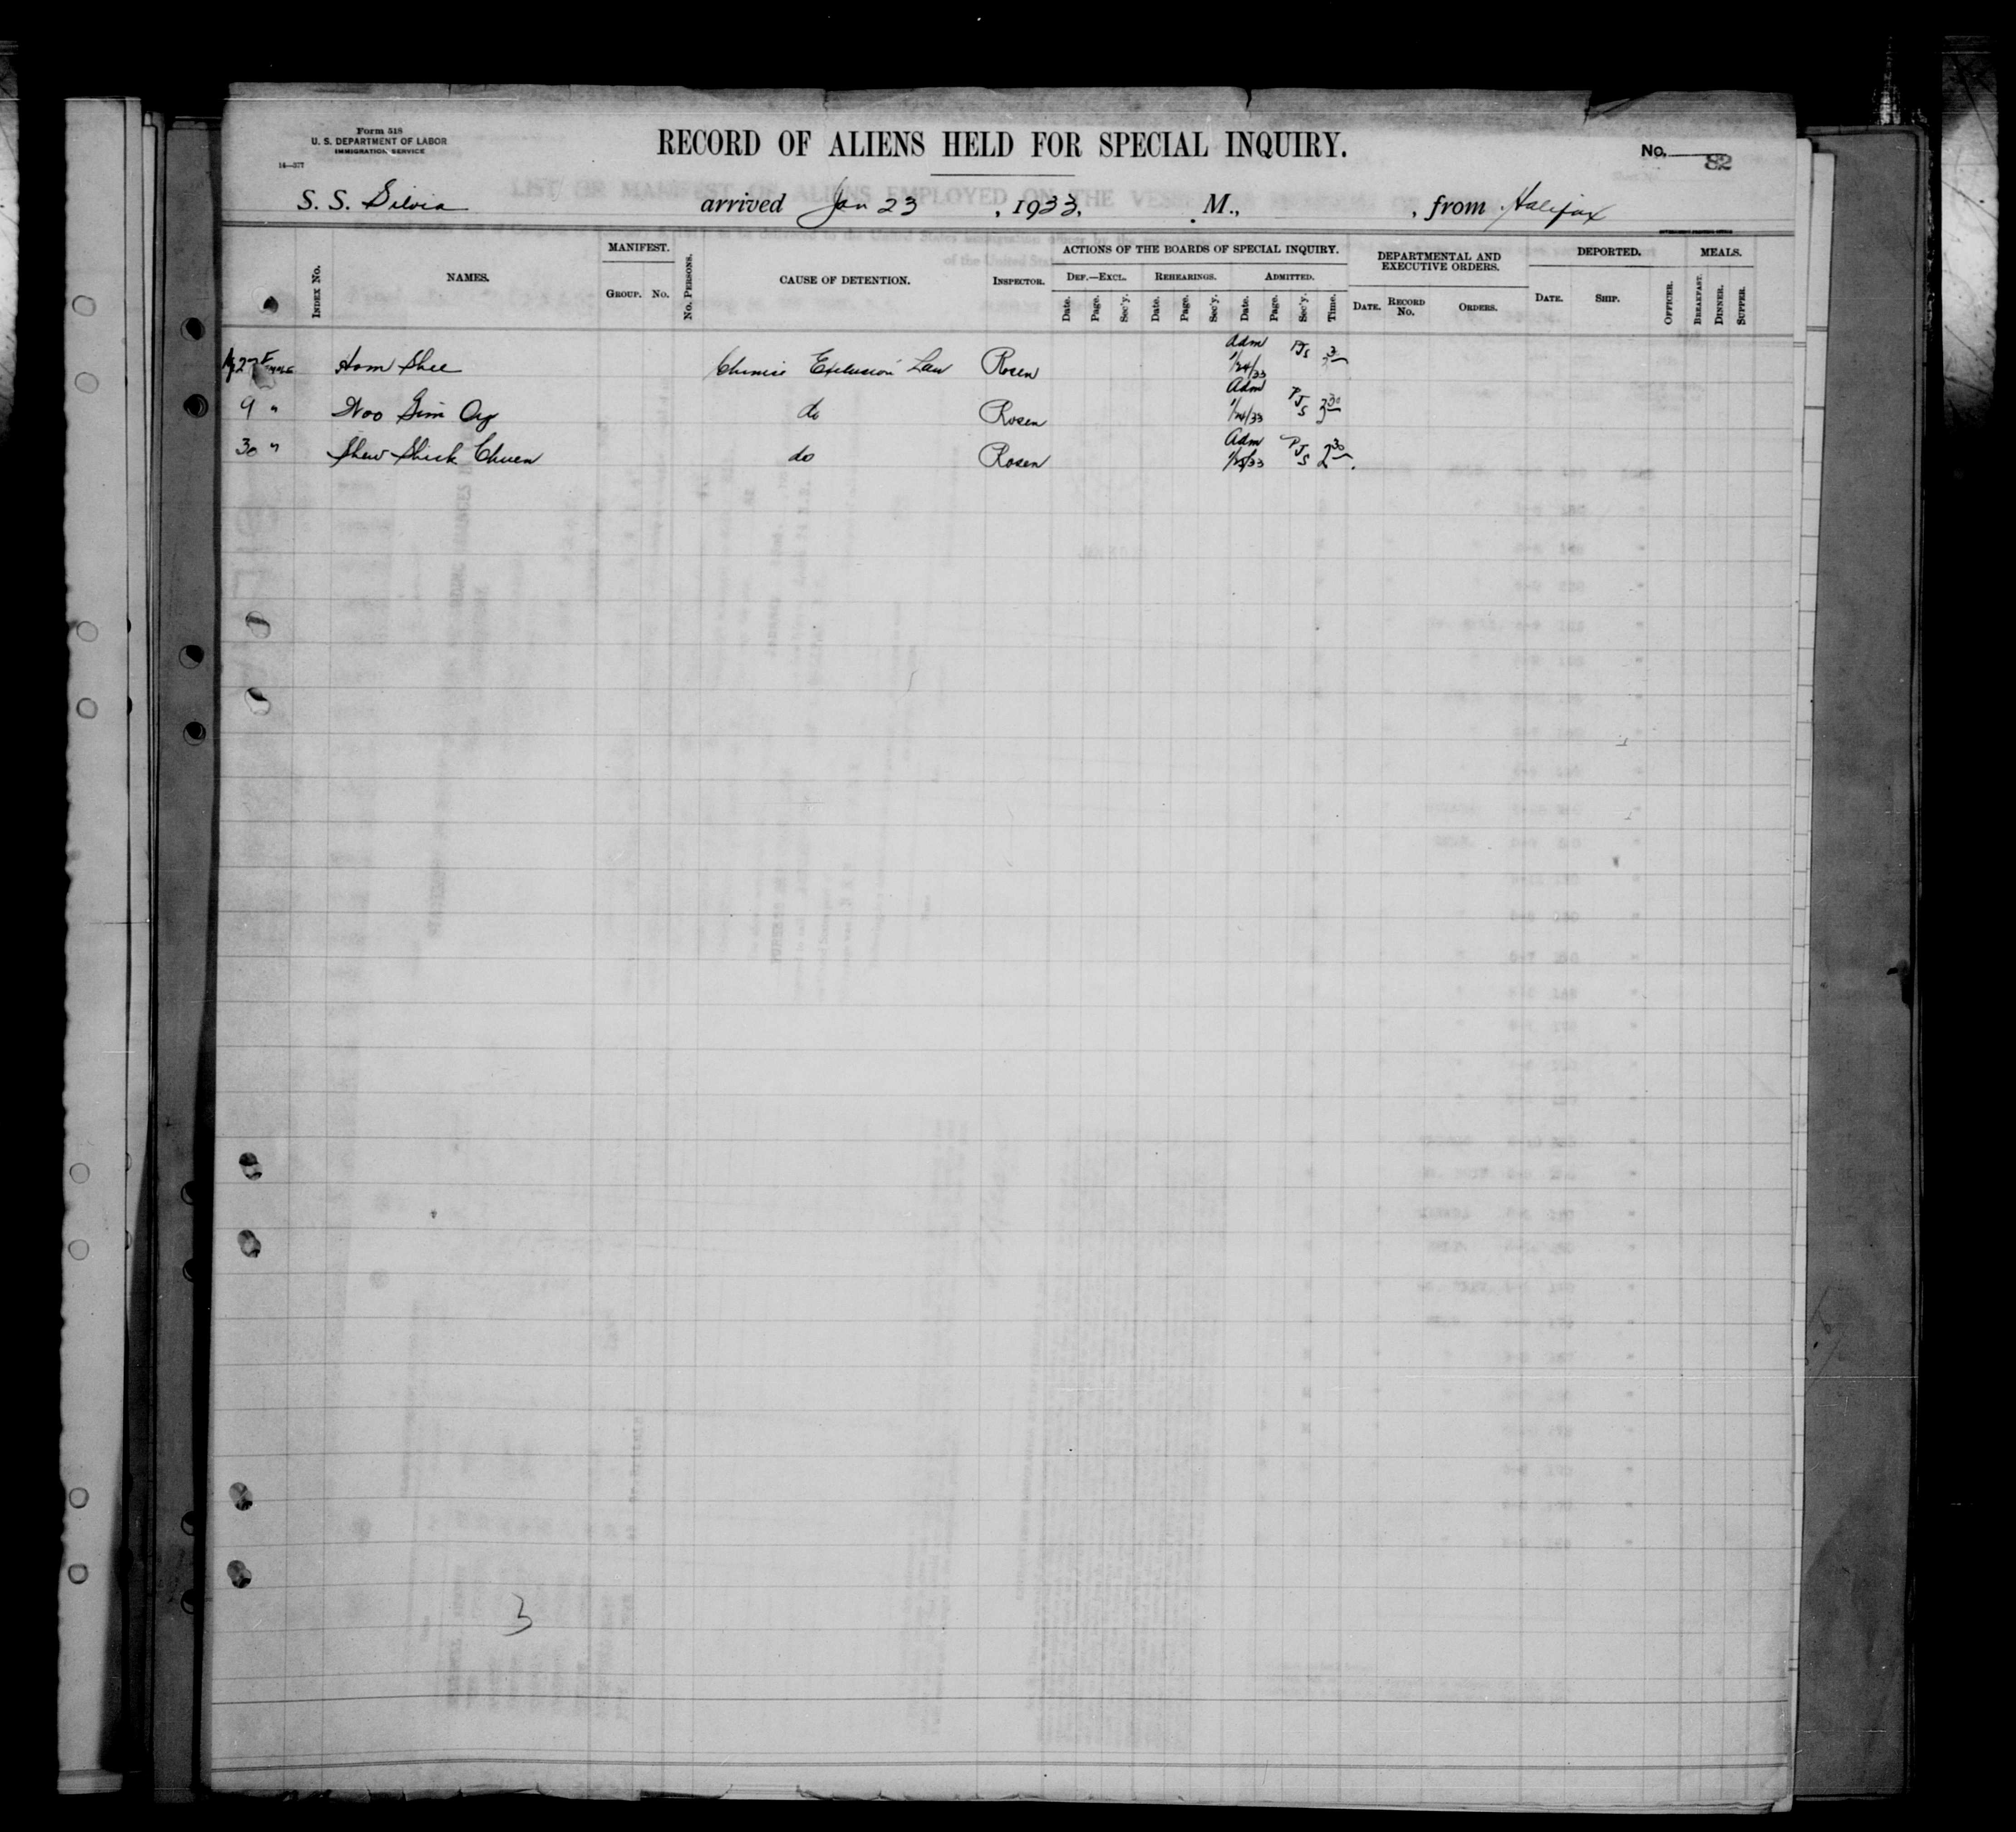 Form 518
U. S. DEPARTMENT OF LABOR
IMMIGRATION SERVICE
14—377
RECORD OF ALIENS HELD FOR SPECIAL INQUIRY.
No. 82
S. S. Silvia arrived Jan 23, 1933, M., , from Halifax
INDEX No. NAMES. MANIFEST. GROUP. No. No. PERSONS. CAUSE OF DETENTION. INSPECTOR. ACTIONS OF THE BOARDS OF SPECIAL INQUIRY. DEF.—EXCL. Date. Page. Sec'y. REHEARINGS. Date. Page. Sec'y. ADMITTED. Date. Page. Sec'y. Time. DEPARTMENTAL AND EXECUTIVE ORDERS. DATE. RECORD No. ORDERS. DEPORTED. DATE. SHIP. OFFICER. MEALS. BREAKFAST. DINNER. SUPPER.
27 Hom Shee Chinese Exclusion Law Rosen Adm 1/24/33 PJS 3
9 " Woo Gim Oy do Rosen Adm 1/24/33 PJS 3 30
30 " Shew Shick Chuen do Rosen Adm 1/25/33 PJS 2 30
3